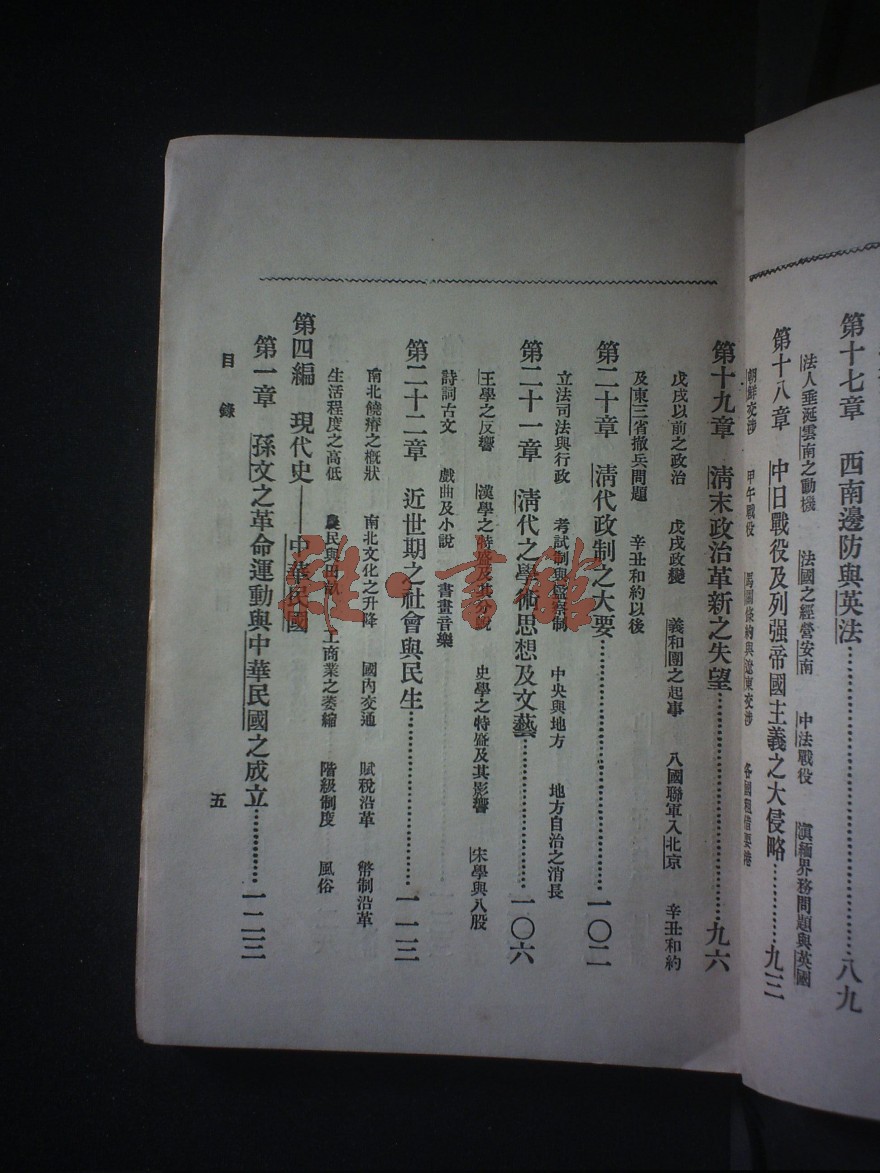 第十七章　西南邊防與英法…………八九
法人垂涎雲南之動機　法國之經營安南　中法戰役　滇緬界務問題與英國
第十八章　中日戰役及列强帝國主義之大侵略…………九三
朝鮮交涉　甲午戰役　馬關條約與遼東交涉　各國租借要港
第十九章　清末政治革新之失望…………九六
戊戌以前之政治　戊戌政變　義和團之起事　八國聯軍入北京　辛丑和約
及東三省撤兵問題　辛丑和約以後
第二十章　清代政制之大要…………一〇二
立法司法與行政　考試制與監察制　中央與地方　地方自治之消長
第二十一章　清代之學術思想及文藝…………一〇六
王學之反響　漢學之特盛及其分說　史學之特盛及其影響　宋學與八股
詩詞古文　戲曲及小說　書畫音樂
第二十二章　近世期之社會與民生…………一一三
南北饒瘠之概狀　南北文化之升降　國內交通　賦稅沿革　幣制沿革
生活程度之高低　農民與田　工商業之萎縮　階級制度　風俗
第四編　現代史——中華民國
第一章　孫文之革命運動與中華民國之成立…………一二三
目錄
五
雅·書館